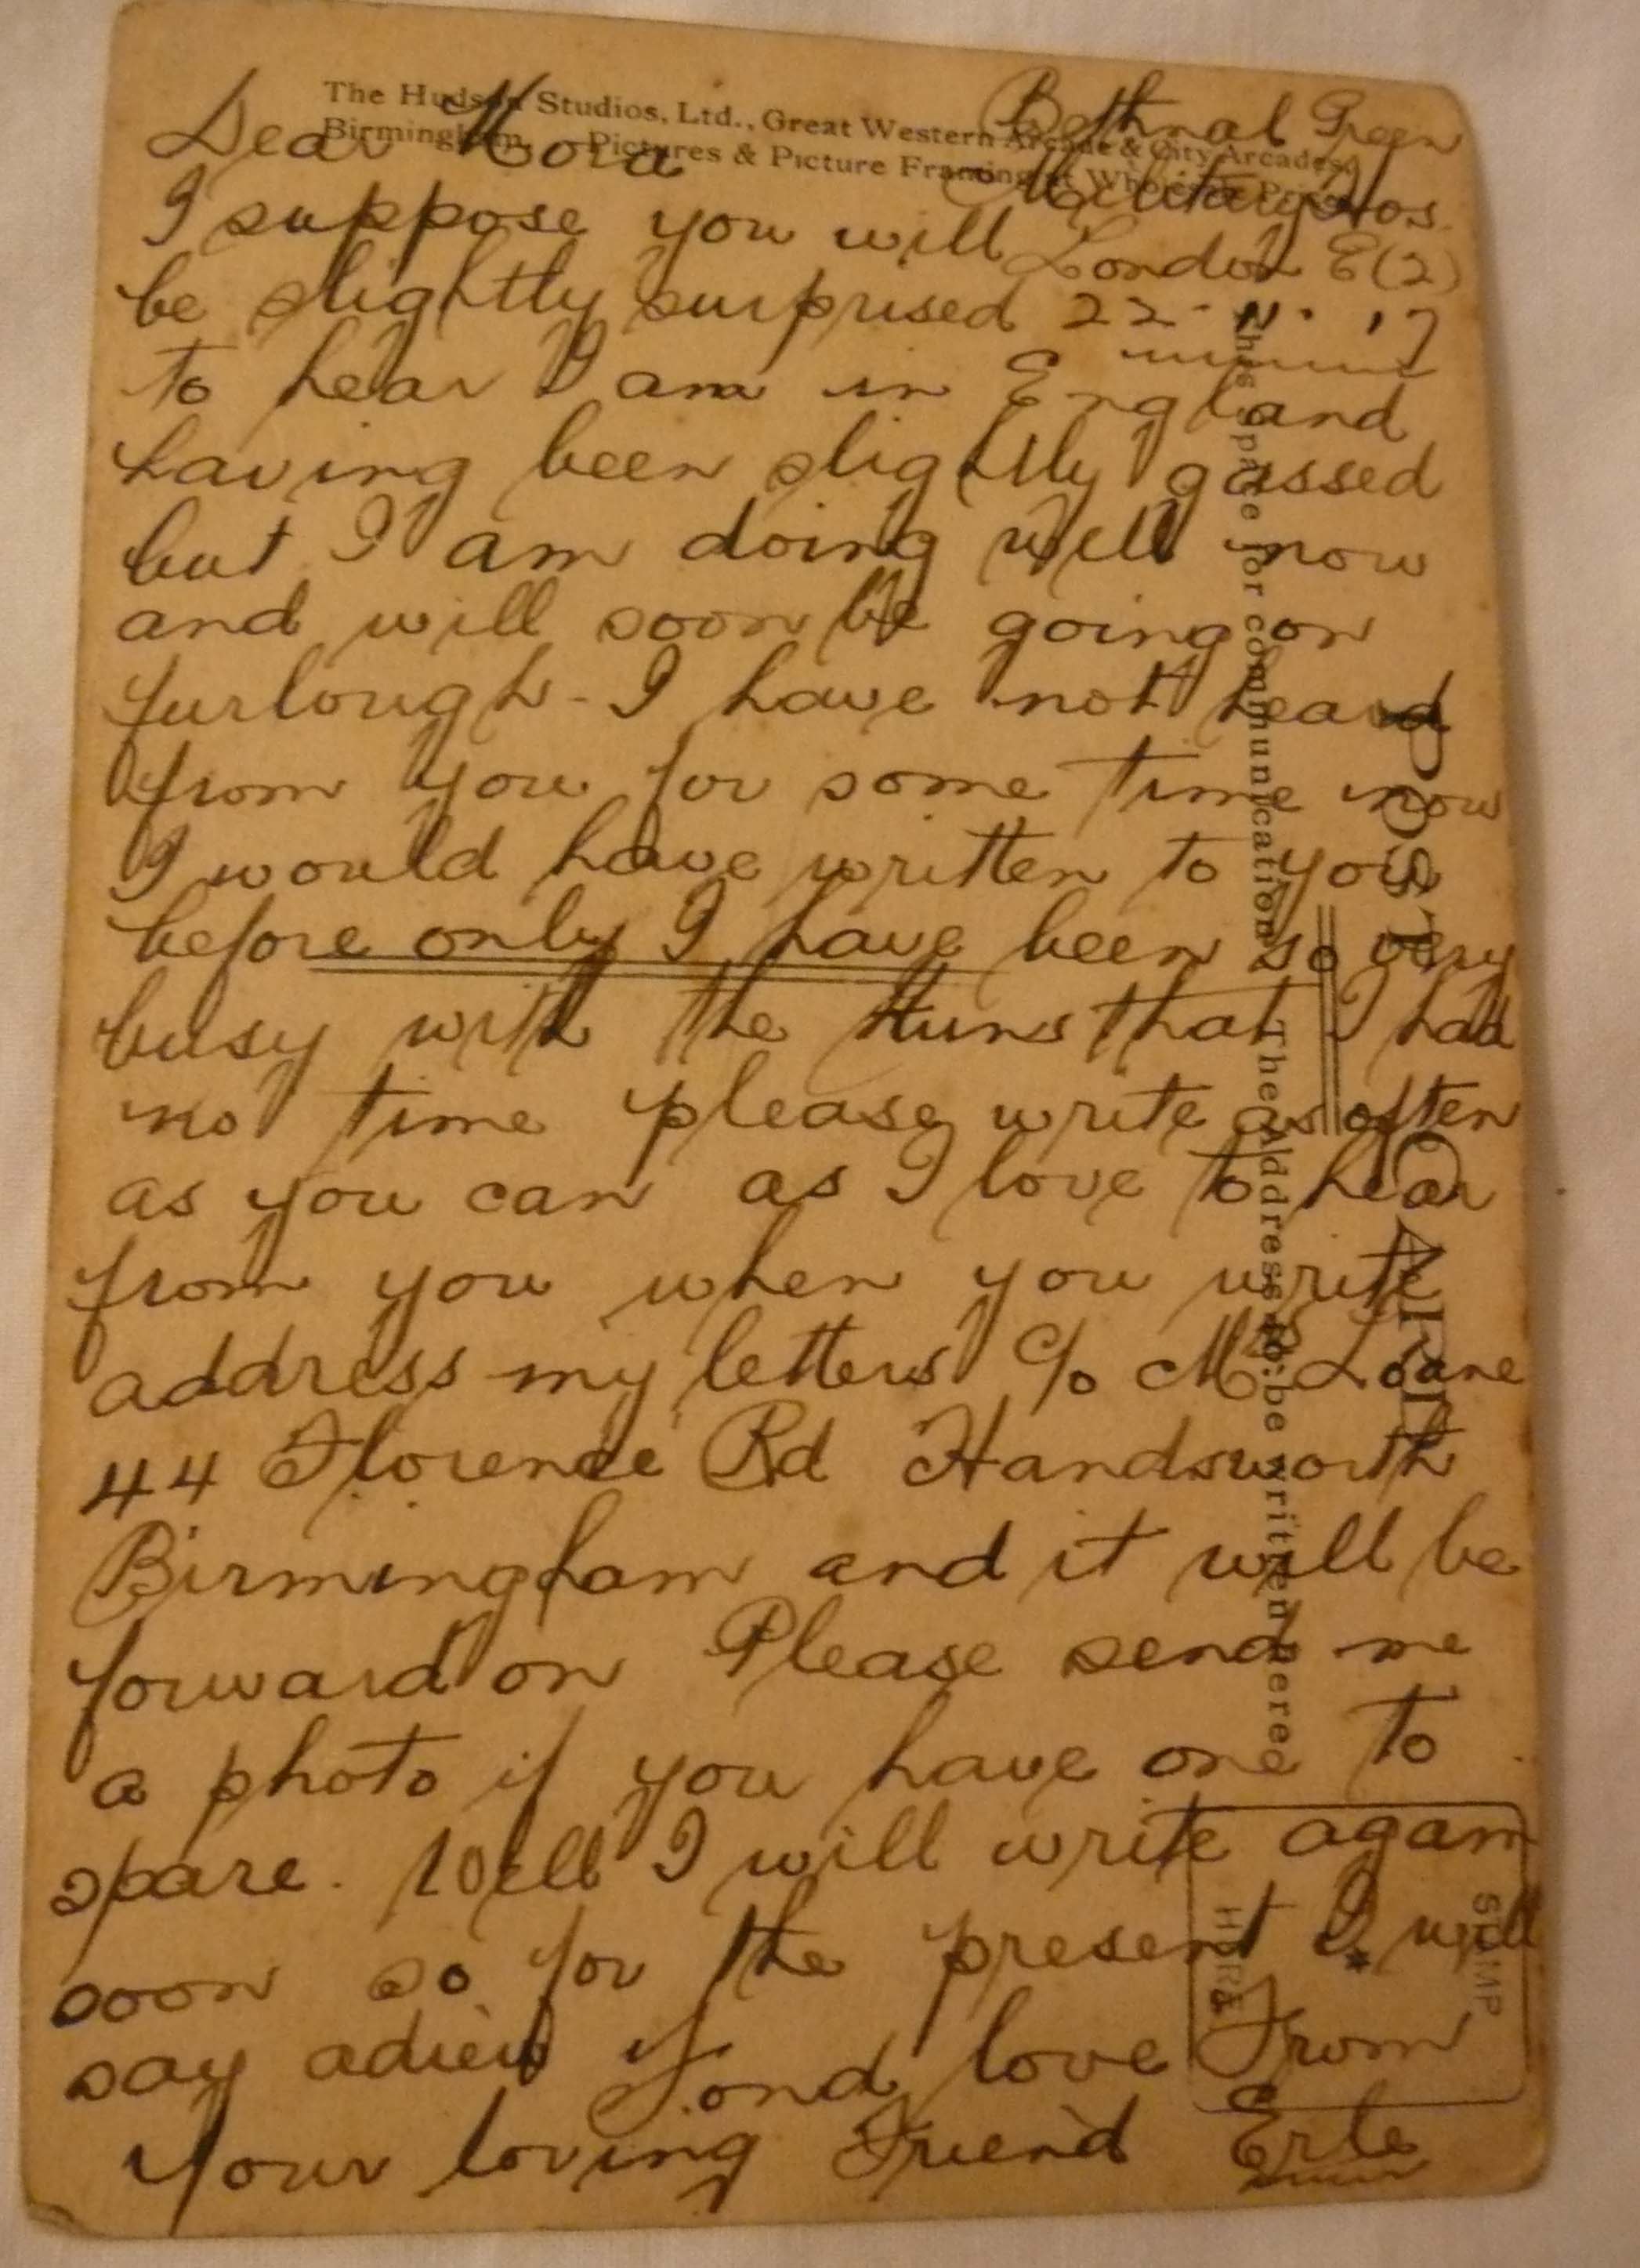 The Hudson Studios, Ltd., Great Western Arcade & City Arcades,
Birmingham. Pictures & Picture Framing at Wholesale Prices.
Bethnal Green
Military Hos.
London E(2)
22 - 11 - 17
Dear Nora
I suppose you will
be slightly surprised
to hear I am in England
having been slightly gassed
but I am doing well now
and will soon be going on
furlough - I have not heard
from you for some time now
I would have written to you
before only I have been so very
busy with the Huns that I had
no time please write as often
as you can as I love to hear
from you when you write
address my letters c/o Mrs Loane
44 Florence Rd Handsworth
Birmingham and it will be
forward on Please send me
a photo if you have one to
spare. Well I will write again
soon so for the present I will
say adieu Fond love From
Your loving Friend Erle
POST CARD
This space for communication. The Address to be written here
STAMP
HERE